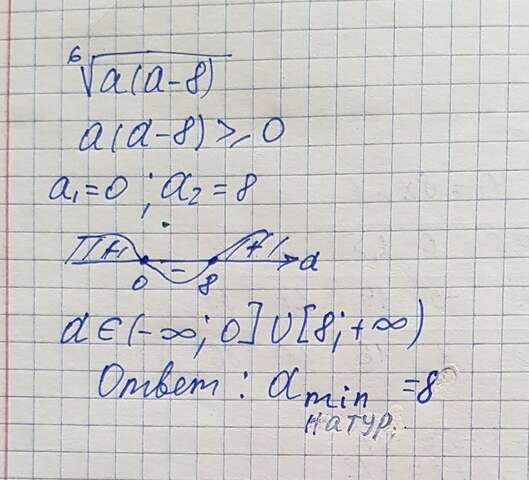 ⁶√a(a-8)
a(a-8)≥0
a₁=0 ; a₂=8
+ - + a
0 8
a∈(-∞; 0]∪[8; +∞)
Ответ: a min натур. =8